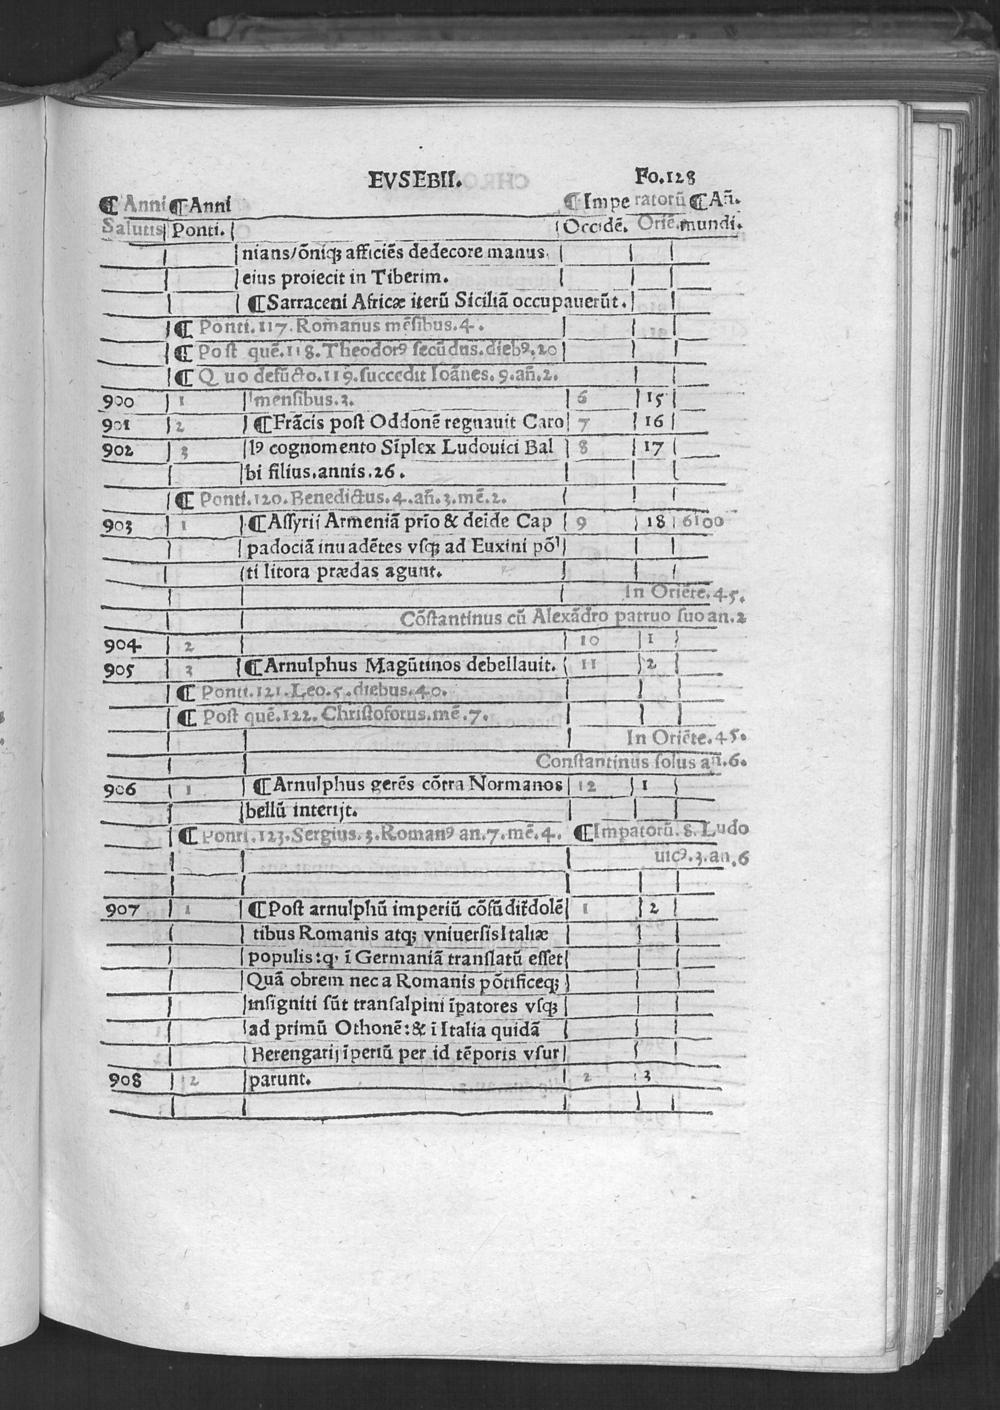 EVSEBII. Fo.128
¶ Anni ¶ Anni ¶ Imperatorū ¶ Añ.
Salutis Ponti. Occidē. Oriē. mundi.
nians/ōniqꝫ afficiēs dedecore manus
eius proiecit in Tiberim.
¶ Sarraceni Africæ iterū Siciliā occupauerūt.
¶ Ponti.117.Romanus mēsibus.4.
¶ Post quē.118.Theodorꝰ secūdus.diebꝰ.20
¶ Quo defūcto.119.succedit Ioānes.9.añ.2.
900 1 mensibus.3. 6 15
901 2 ¶ Frācis post Oddonē regnauit Caro 7 16
902 3 lꝰ cognomento Sīplex Ludouici Bal 8 17
bi filius.annis.26.
¶ Ponti.120.Benedictus.4.añ.3.mē.2.
903 1 ¶ Assyrii Armeniā prīo & deīde Cap 9 18 6100
padociā inuadētes vsqꝫ ad Euxini pō
ti litora prædas agunt.
In Oriēte.45.
Cōstantinus cū Alexādro patruo suo an.2
904 2 10 1
905 3 ¶ Arnulphus Magūtinos debellauit. 11 2
¶ Ponti.121.Leo.5.diebus.40.
¶ Post quē.122.Christoforus.mē.7.
In Oriēte.45.
Constantinus solus añ.6.
906 1 ¶ Arnulphus gerēs cōtra Normanos 12 1
bellū interijt.
¶ Ponti.123.Sergius.3.Romanꝰ an.7.mē.4. ¶ Impatorū.8.Ludo
uicꝰ.3.an.6
907 1 ¶ Post arnulphū imperiū cōfūdit̄dolē 1 2
tibus Romanis atqꝫ vniuersis Italiæ
populis:q, ī Germaniā translatū esset
Quā obrem nec a Romanis pōtificeqꝫ
insigniti sūt transalpini īpatores vsqꝫ
ad primū Othonē:& ī Italia quidā
Berengarij īperiū per id tēporis vsur
908 2 parunt. 2 3